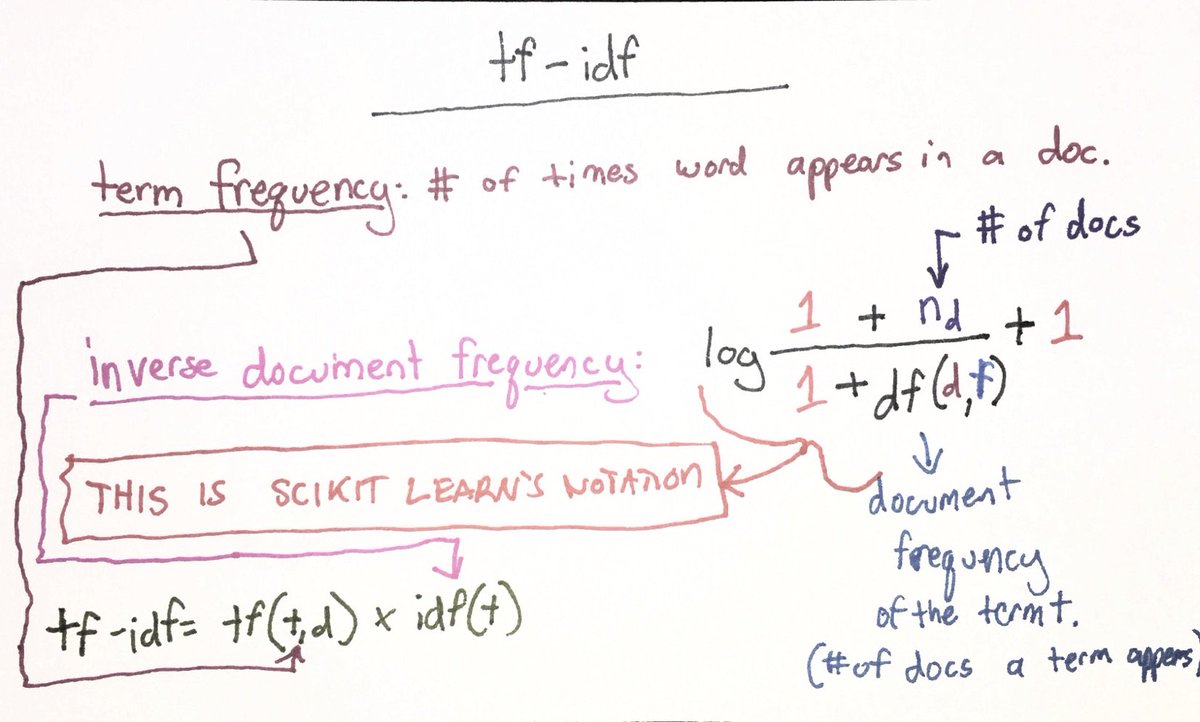 tf-idf
term frequency: # of times word appears in a doc.
# of docs
inverse document frequency: log 1 + nd / 1 + df(d,t) + 1
THIS IS SCIKIT LEARN'S NOTATION
document
frequency
of the term t.
(# of docs a term appears)
tf-idf = tf(t,d) x idf(t)